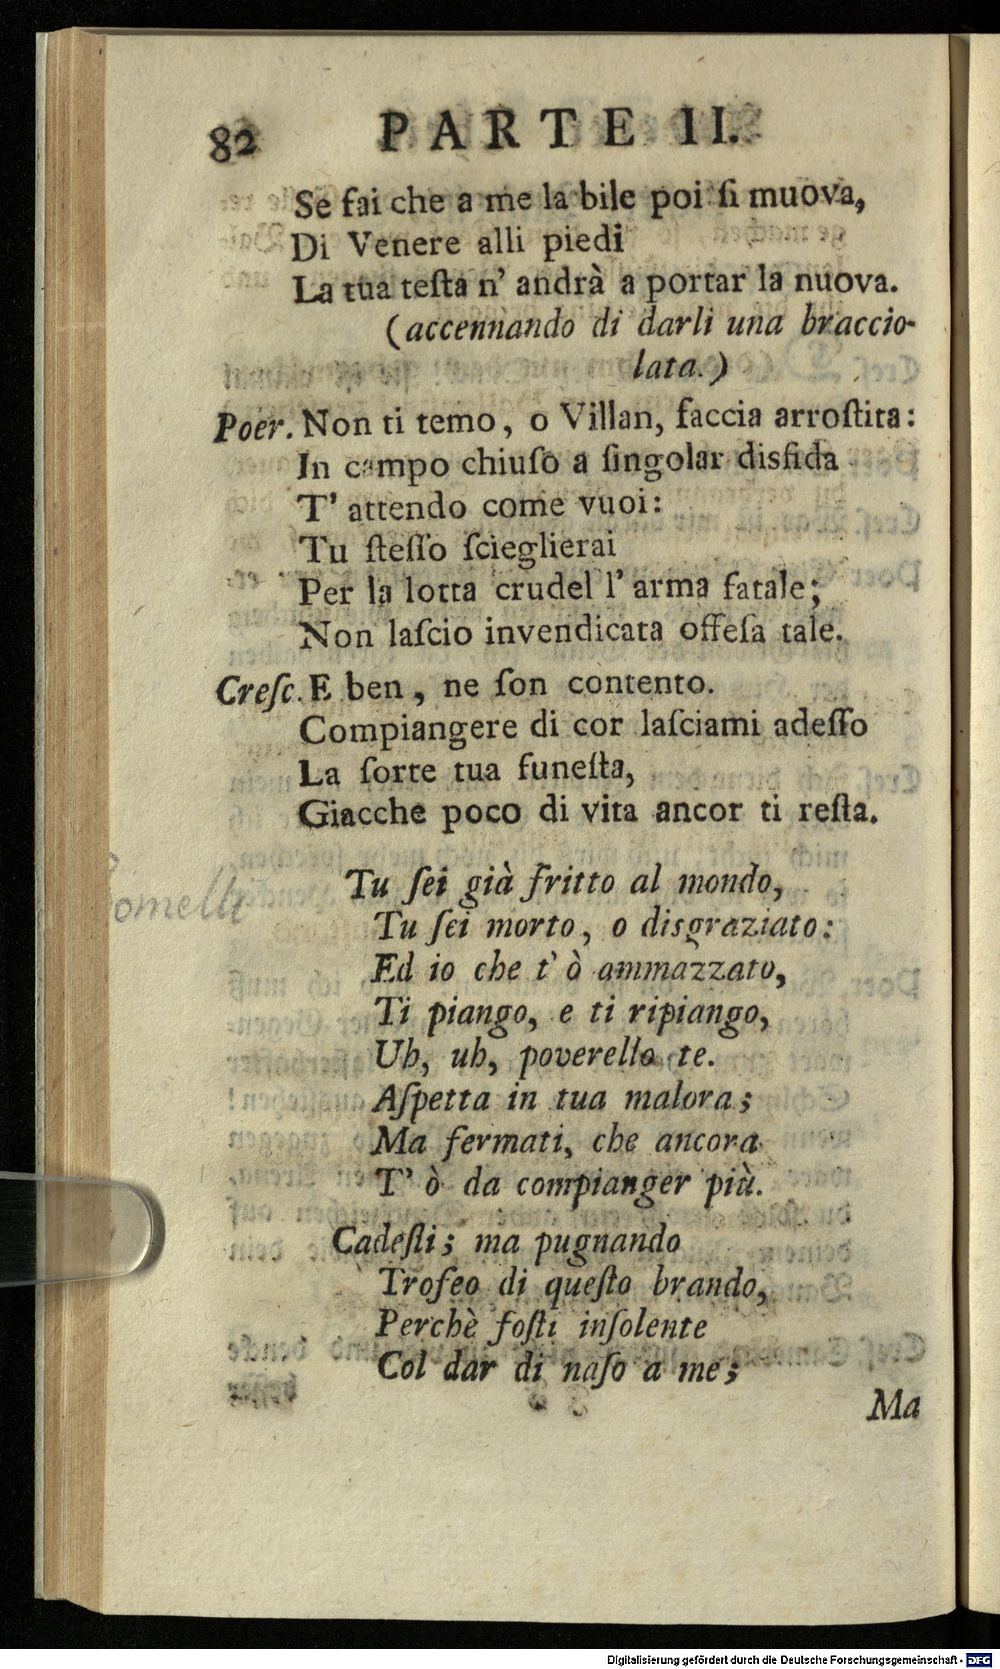 82 PARTE II.
Se fai che a me la bile poi ſi muova,
Di Venere alli piedi
La tua teſta n' andrà a portar la nuova.
(accennando di darli una braccio-
lata.)
Poer. Non ti temo, o Villan, faccia arroſtita:
In campo chiuſo a ſingolar disfida
T' attendo come vuoi:
Tu ſteſſo ſcieglierai
Per la lotta crudel l' arma fatale;
Non laſcio invendicata offeſa tale.
Creſc. E ben, ne ſon contento.
Compiangere di cor laſciami adeſſo
La ſorte tua funeſta,
Giacche poco di vita ancor ti reſta.
Tu ſei già fritto al mondo,
Tu ſei morto, o disgraziato:
Ed io che t' ò ammazzato,
Ti piango, e ti ripiango,
Uh, uh, poverello te.
Aſpetta in tua malora;
Ma fermati, che ancora
T' ò da compianger più.
Cadeſti; ma pugnando
Trofeo di queſto brando,
Perchè foſti inſolente
Col dar di naſo a me;
Ma
Digitalisierung gefördert durch die Deutsche Forschungsgemeinschaft - DFG